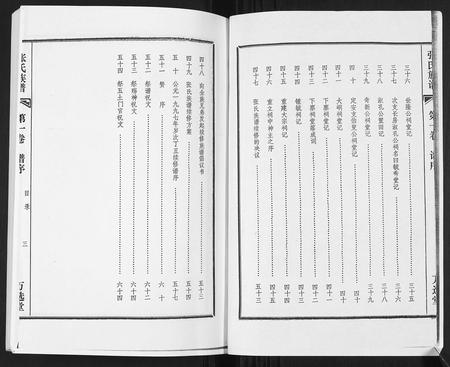 张氏族谱
第一卷 谱序
三十六 世隆公祠堂记 三十五
三十七 次支长房淑孔公祠名曰毓秀堂记 三十六
三十八 淑孔公置田记 三十八
三十九 奇新公祠堂记 三十九
四十 定安支伯旻公祠堂记 四十
四十一 大明祠堂记 四十
四十二 下寨祠堂记
四十三 下寨祠堂落成训
四十四 钟毓祠记
四十五 重建大宗祠记
四十六 重立祠中神主之序
四十七 张氏族谱续修的决议 五十三
万选堂
张氏族谱
第一卷 谱序
目录
三
万选堂
四十八 向全族兄弟发起续修族谱倡议书 五十三
四十九 张氏族谱续修方案 五十四
五十 公元一九九七年岁次丁丑续修谱序 五十七
五十一 赞序 六十
五十二 祭谱祝文 六十二
五十三 祭瑞神祝文 六十四
五十四 祭五土门官祝文 六十四